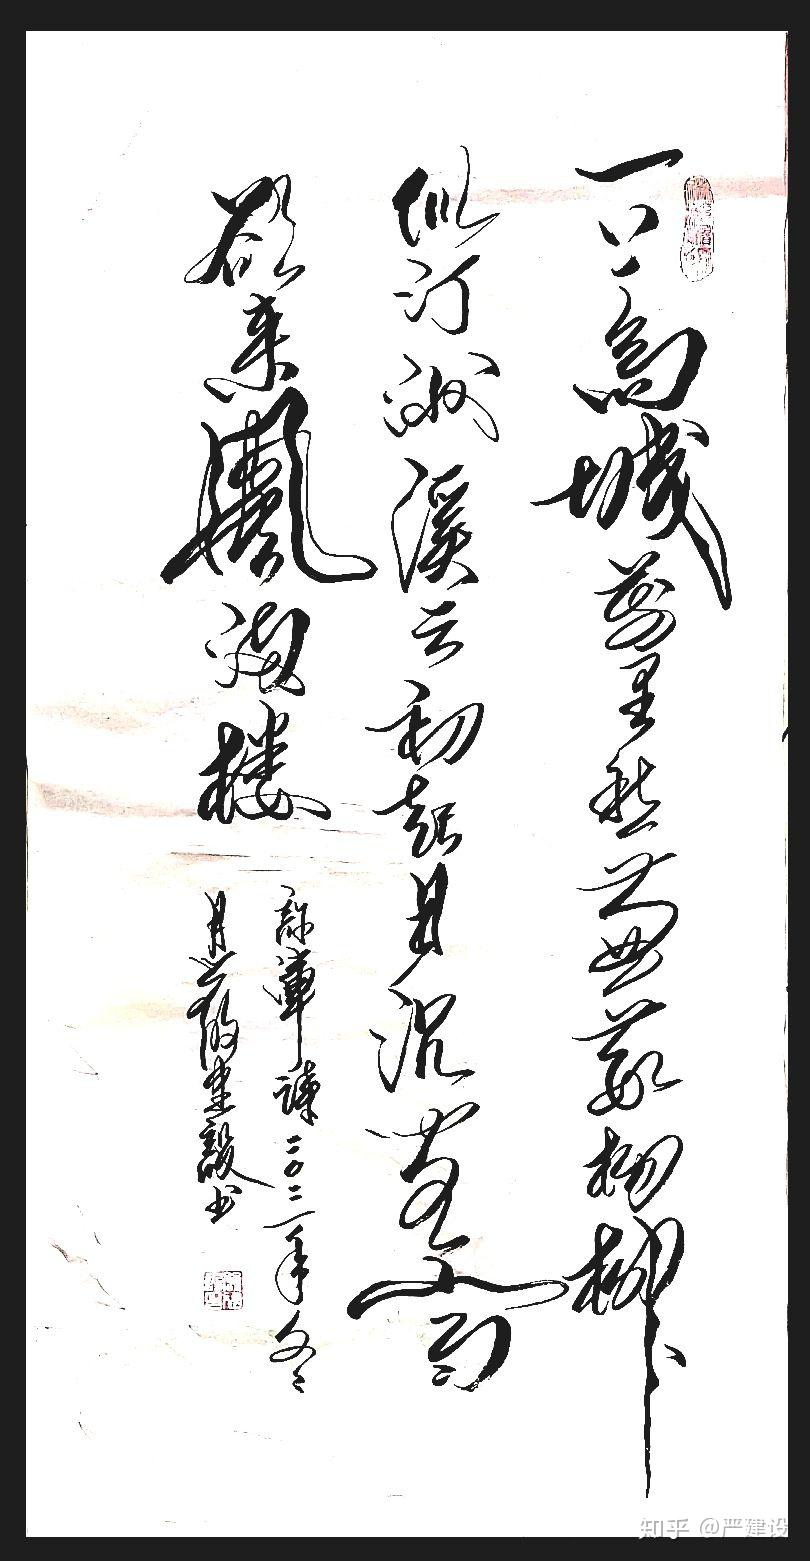 一上高城萬里愁蒹葭杨柳
似汀洲溪云初起日沉阁山雨
欲来風满楼
许渾诗二〇二一年冬
月 建設书
知乎 @严建设